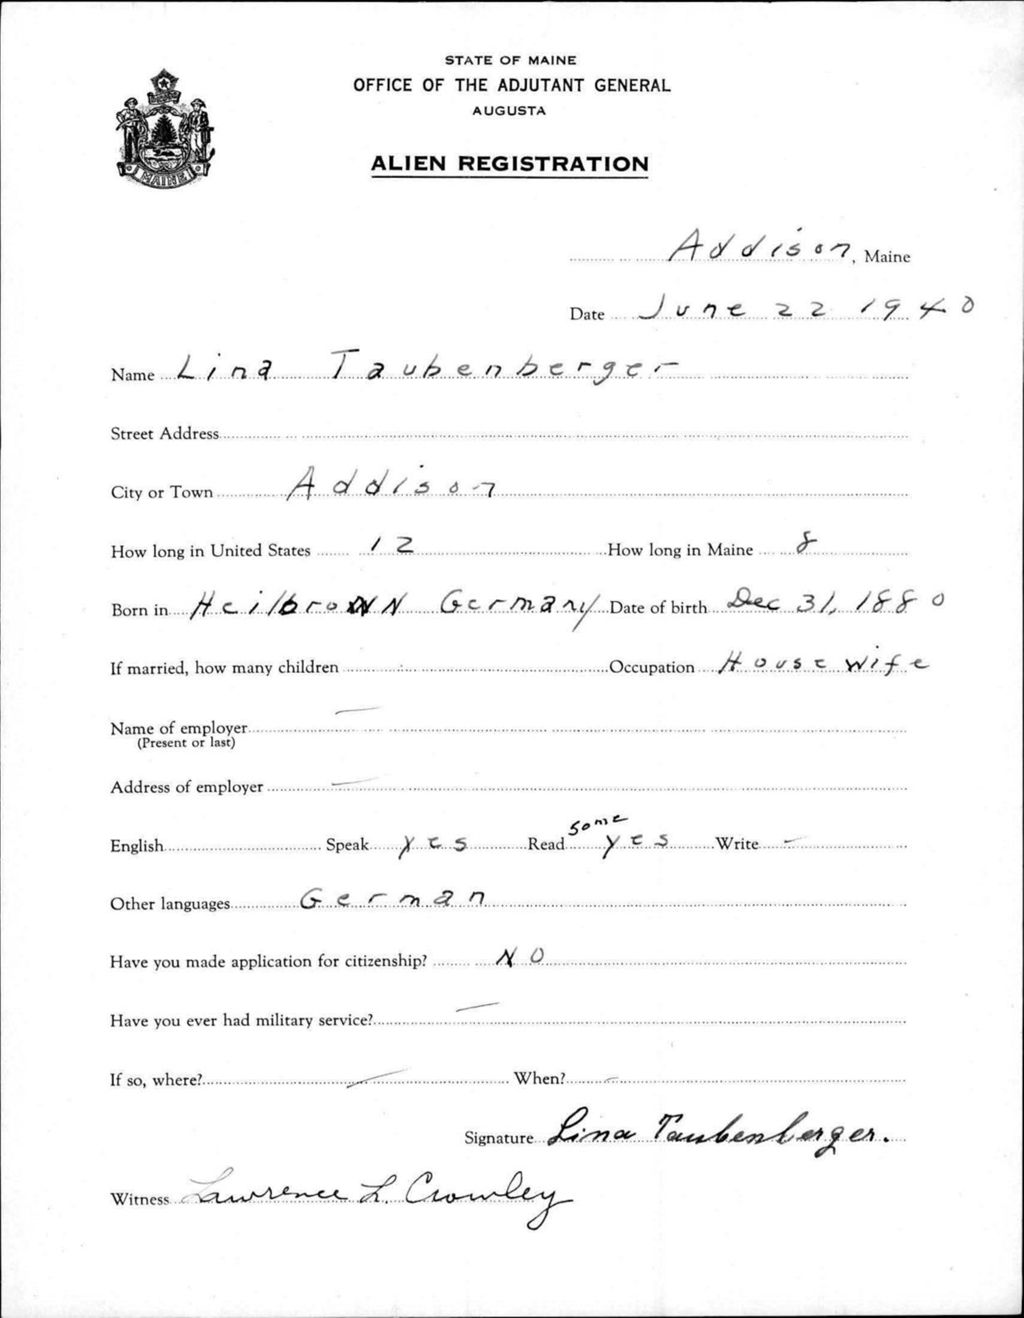 STATE OF MAINE
OFFICE OF THE ADJUTANT GENERAL
AUGUSTA
ALIEN REGISTRATION
MAINE
Addison, Maine
Date June 22 1940
Name Lina Taubenberger
Street Address
City or Town Addison
How long in United States 12 How long in Maine 8
Born in Heilbronn Germany Date of birth Dec 31, 1880
If married, how many children Occupation Housewife
Name of employer —
(Present or last)
Address of employer —
some
English Speak yes Read yes Write –
Other languages German
Have you made application for citizenship? NO
Have you ever had military service? —
If so, where? — When? –
Signature Lina Taubenberger.
Witness Lawrence L. Crowley